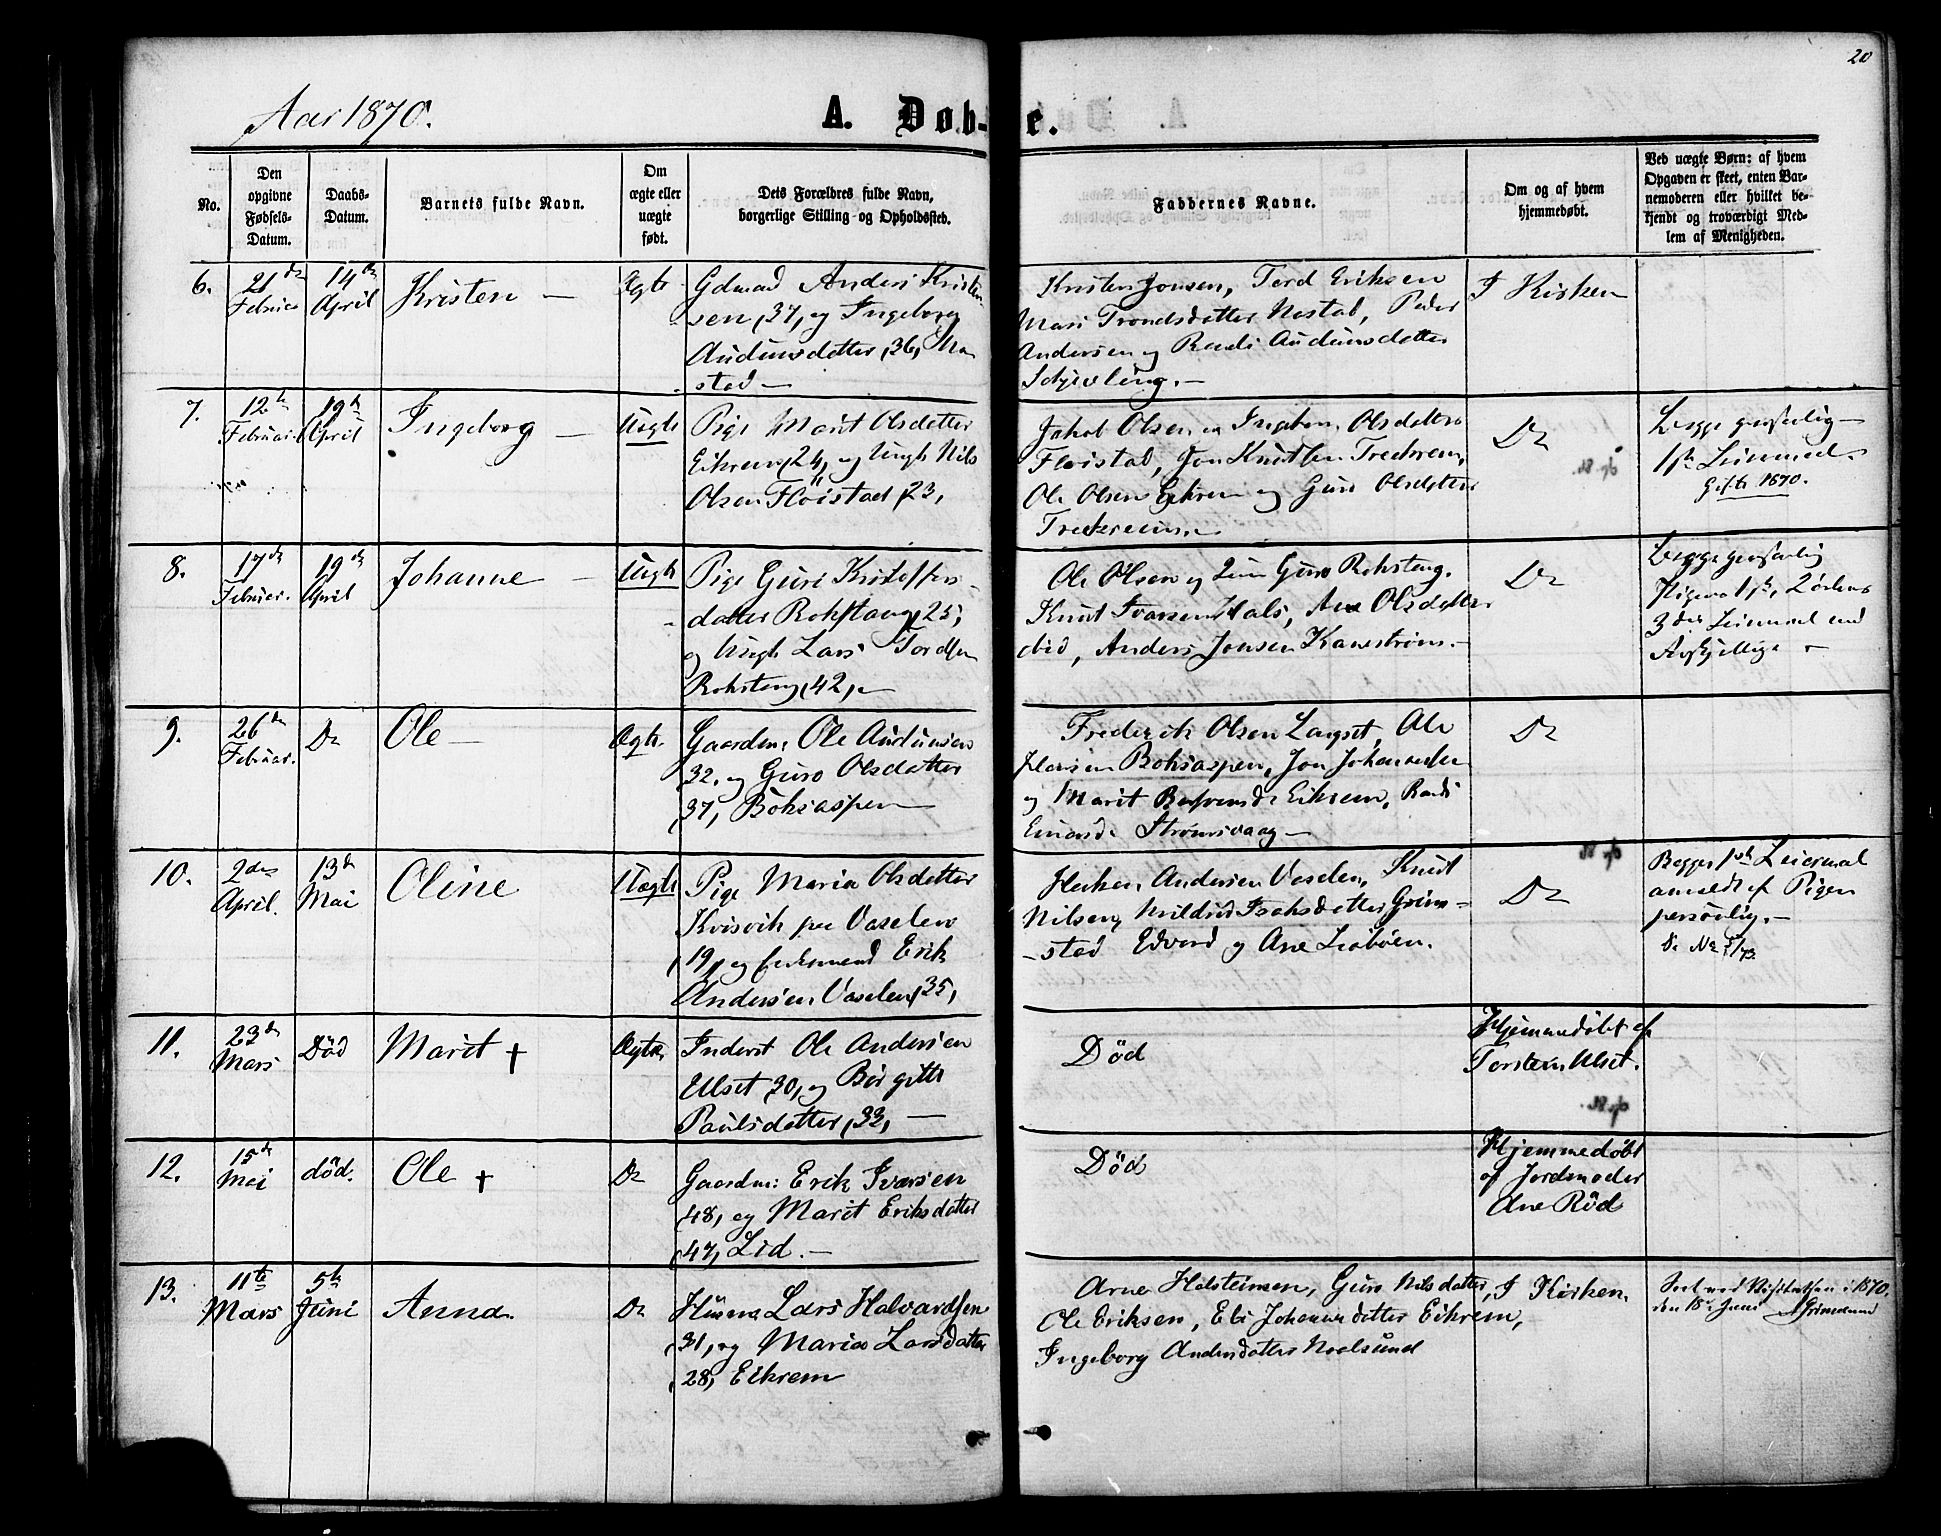 20
Aar 1870.
A. Døb-
e.
No.
Den
opgivne
Fødsels-
Datum.
Daabs-
Datum.
Barnets fulde Navn.
Om
ægte eller
uægte
født.
Dets Forældres fulde Navn,
borgerlige Stilling og Opholdssted.
Faddernes Navne.
Om og af hvem
hjemmedøbt.
Ved uægte Børn: af hvem
Opgaven er skeet, enten Bar-
nemoderen eller hvilket be-
kjendt og troværdigt Med-
lem af Menigheden.
6.
21de
Februar
14de
April
Kristen —
Ægte
Gdmand Anders Kristen-
sen, 37, og Ingeborg
Audunsdatter, 36, Na-
stad —
Kristen Jonsen, Tord Eriksen
Mari Trondsdatter Nastad, Peder
Andersen og Randi Audunsdatter
Schjevling. —
I Kirken
7.
12te
Februar.
19de
April
Ingeborg —
Uægte
Pige Marit Olsdatter
Eikrem, 24, og Ungk Nils
Olsen Fløistad, 23,
Jakob Olsen og Ingebor. Olsdatter
Fløistad, Jon Knutsen Trederem,
Ole Olsen Eikrem og Guro Olsdatter
Do
Begge
1ste Leiermaal.
Gifte 1870.
8.
17de
Februar.
19de
April
Johanne —
Uægte
Pige Guri Kristoffers-
datter Rokstang, 25,
og Ungk Lars Tordsen
Rokstang, 42, —
Ole Olsen og Guro Rokstang.
Knut Ivarsen Hals, Ane Olsdatter
ibid, Anders Jonsen Kanestrøm. —
Do
Begge
Pigens 1ste,
3die Leiermaal med
9.
26de
Februar.
Do
Ole —
Ægte.
Gaardm: Ole Audunsen
32, og Guro Olsdatter
37, Boksaspen —
Frederik Olsen Langset, Ole
Boksaspen, Jon Johannesen
og Marit Eikrem, Randi
Strømsvaag —
Do
10.
2den
April.
13de
Mai
Oline
Uægte
Pige Maria Olsdatter
Kvisvik paa Vaselen
19, og Enkemand Erik
Andersen Vaselen, 35,
Haken Andersen Vaselen, Knut
Nilsen, Mildrid Isaksdatter Grim-
stad Edvard og Ane Leabøen.
Do
Begges 1ste Leiermaal
anmeldt af Pigen
personlig. —
11.
23de
Mars
Død
Marit †
Ægte.
Inderst Ole Andersen
Ulset, 30, og Børgitte
Paulsdatter, 32, —
Død
Hjemmedøbt af
Torsten Ulset.
12.
15de
Mai
død.
Ole †
Do
Gaardm: Erik Ivarsen
48, og Marit Eriksdatter
47, Lid. —
Død
Hjemmedøbt
af Jordmoder
Ane Rød
13.
11te
Mars
5te
Juni
Anna.
Do
Husm: Lars Halvardsen
31, og Maria Larsdatter
28, Eikrem
Arne Halsteinsen, Guro Nilsdatter,
Ole Eriksen, Eli Johannesdatter Eikrem,
Ingeborg Andersdatter Noelsund
I Kirken.
1870.
den 18de Juni